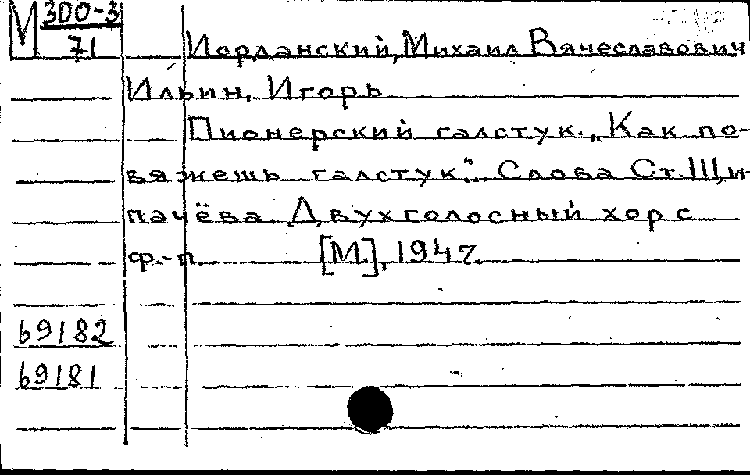 М 300-3
71
Иорданский, Михаил Вячеславович
Ильин, Игорь
Пионерский галстук. „Как по-
вяжешь галстук." Слова Ст. Щи-
пачёва. Двухголосный хор с
ф.-п. [М.], 1947.
69182
69181